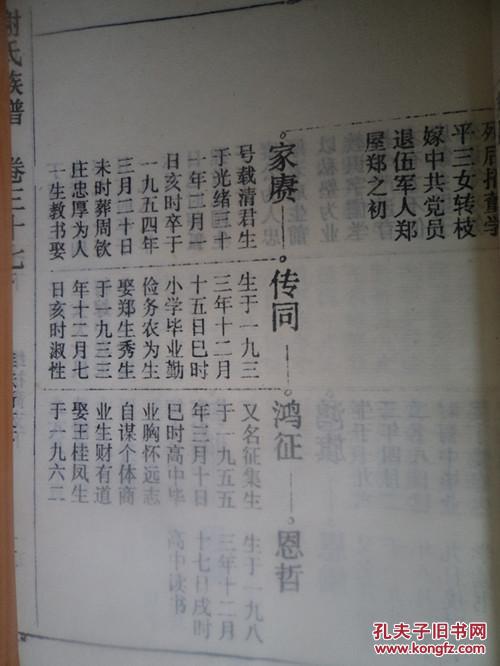 平三女转枝
嫁中共党员
退伍军人郑
屋郑之初
家赓
号载清君生
于光绪三十
一年二月一
日亥时卒于
一九五四年
三月二十日
未时葬周钦
庄忠厚为人
一生教书娶
传同
生于一九三
三年十二月
十五日巳时
小学毕业勤
俭务农为生
娶郑生秀生
于一九三三
年十二月七
日亥时淑性
鸿征
又名征集生
于一九五五
年三月十日
巳时高中毕
业胸怀远志
自谋个体商
业生财有道
娶王桂凤生
于一九六二
恩哲
生于一九八
三年十二月
十七日戌时
高中读书
谢氏族谱 卷三十七
孔夫子旧书网
www.kongfz.com